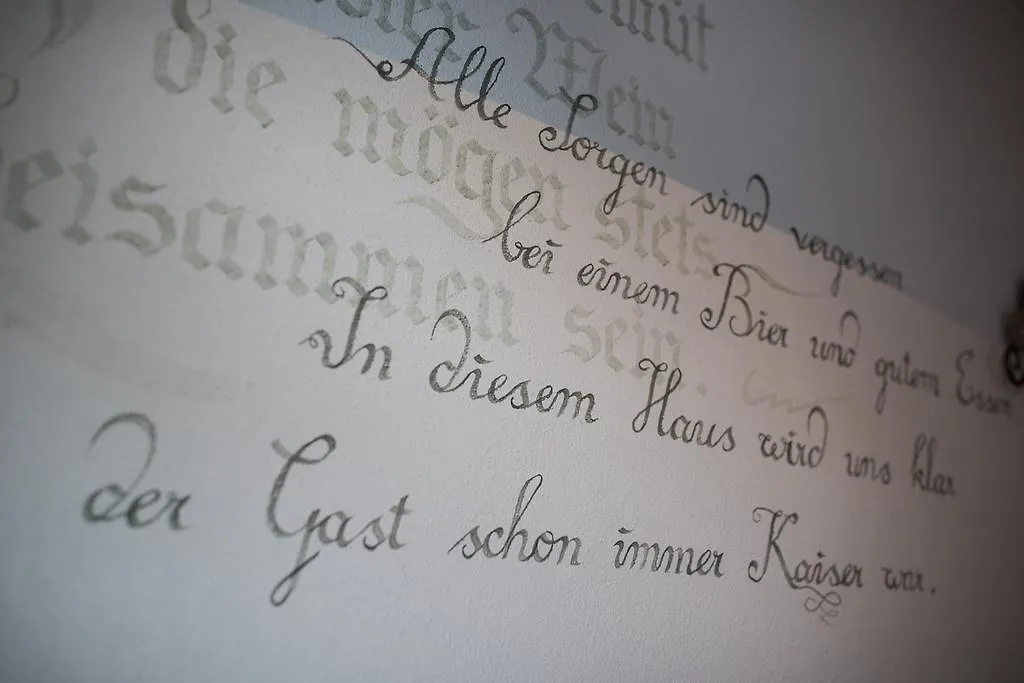 müt
Mein
die mögen stets
beisammen sein.
Alle Sorgen sind vergessen
bei einem Bier und gutem Essen
In diesem Haus wird uns klar
der Gast schon immer Kaiser war.